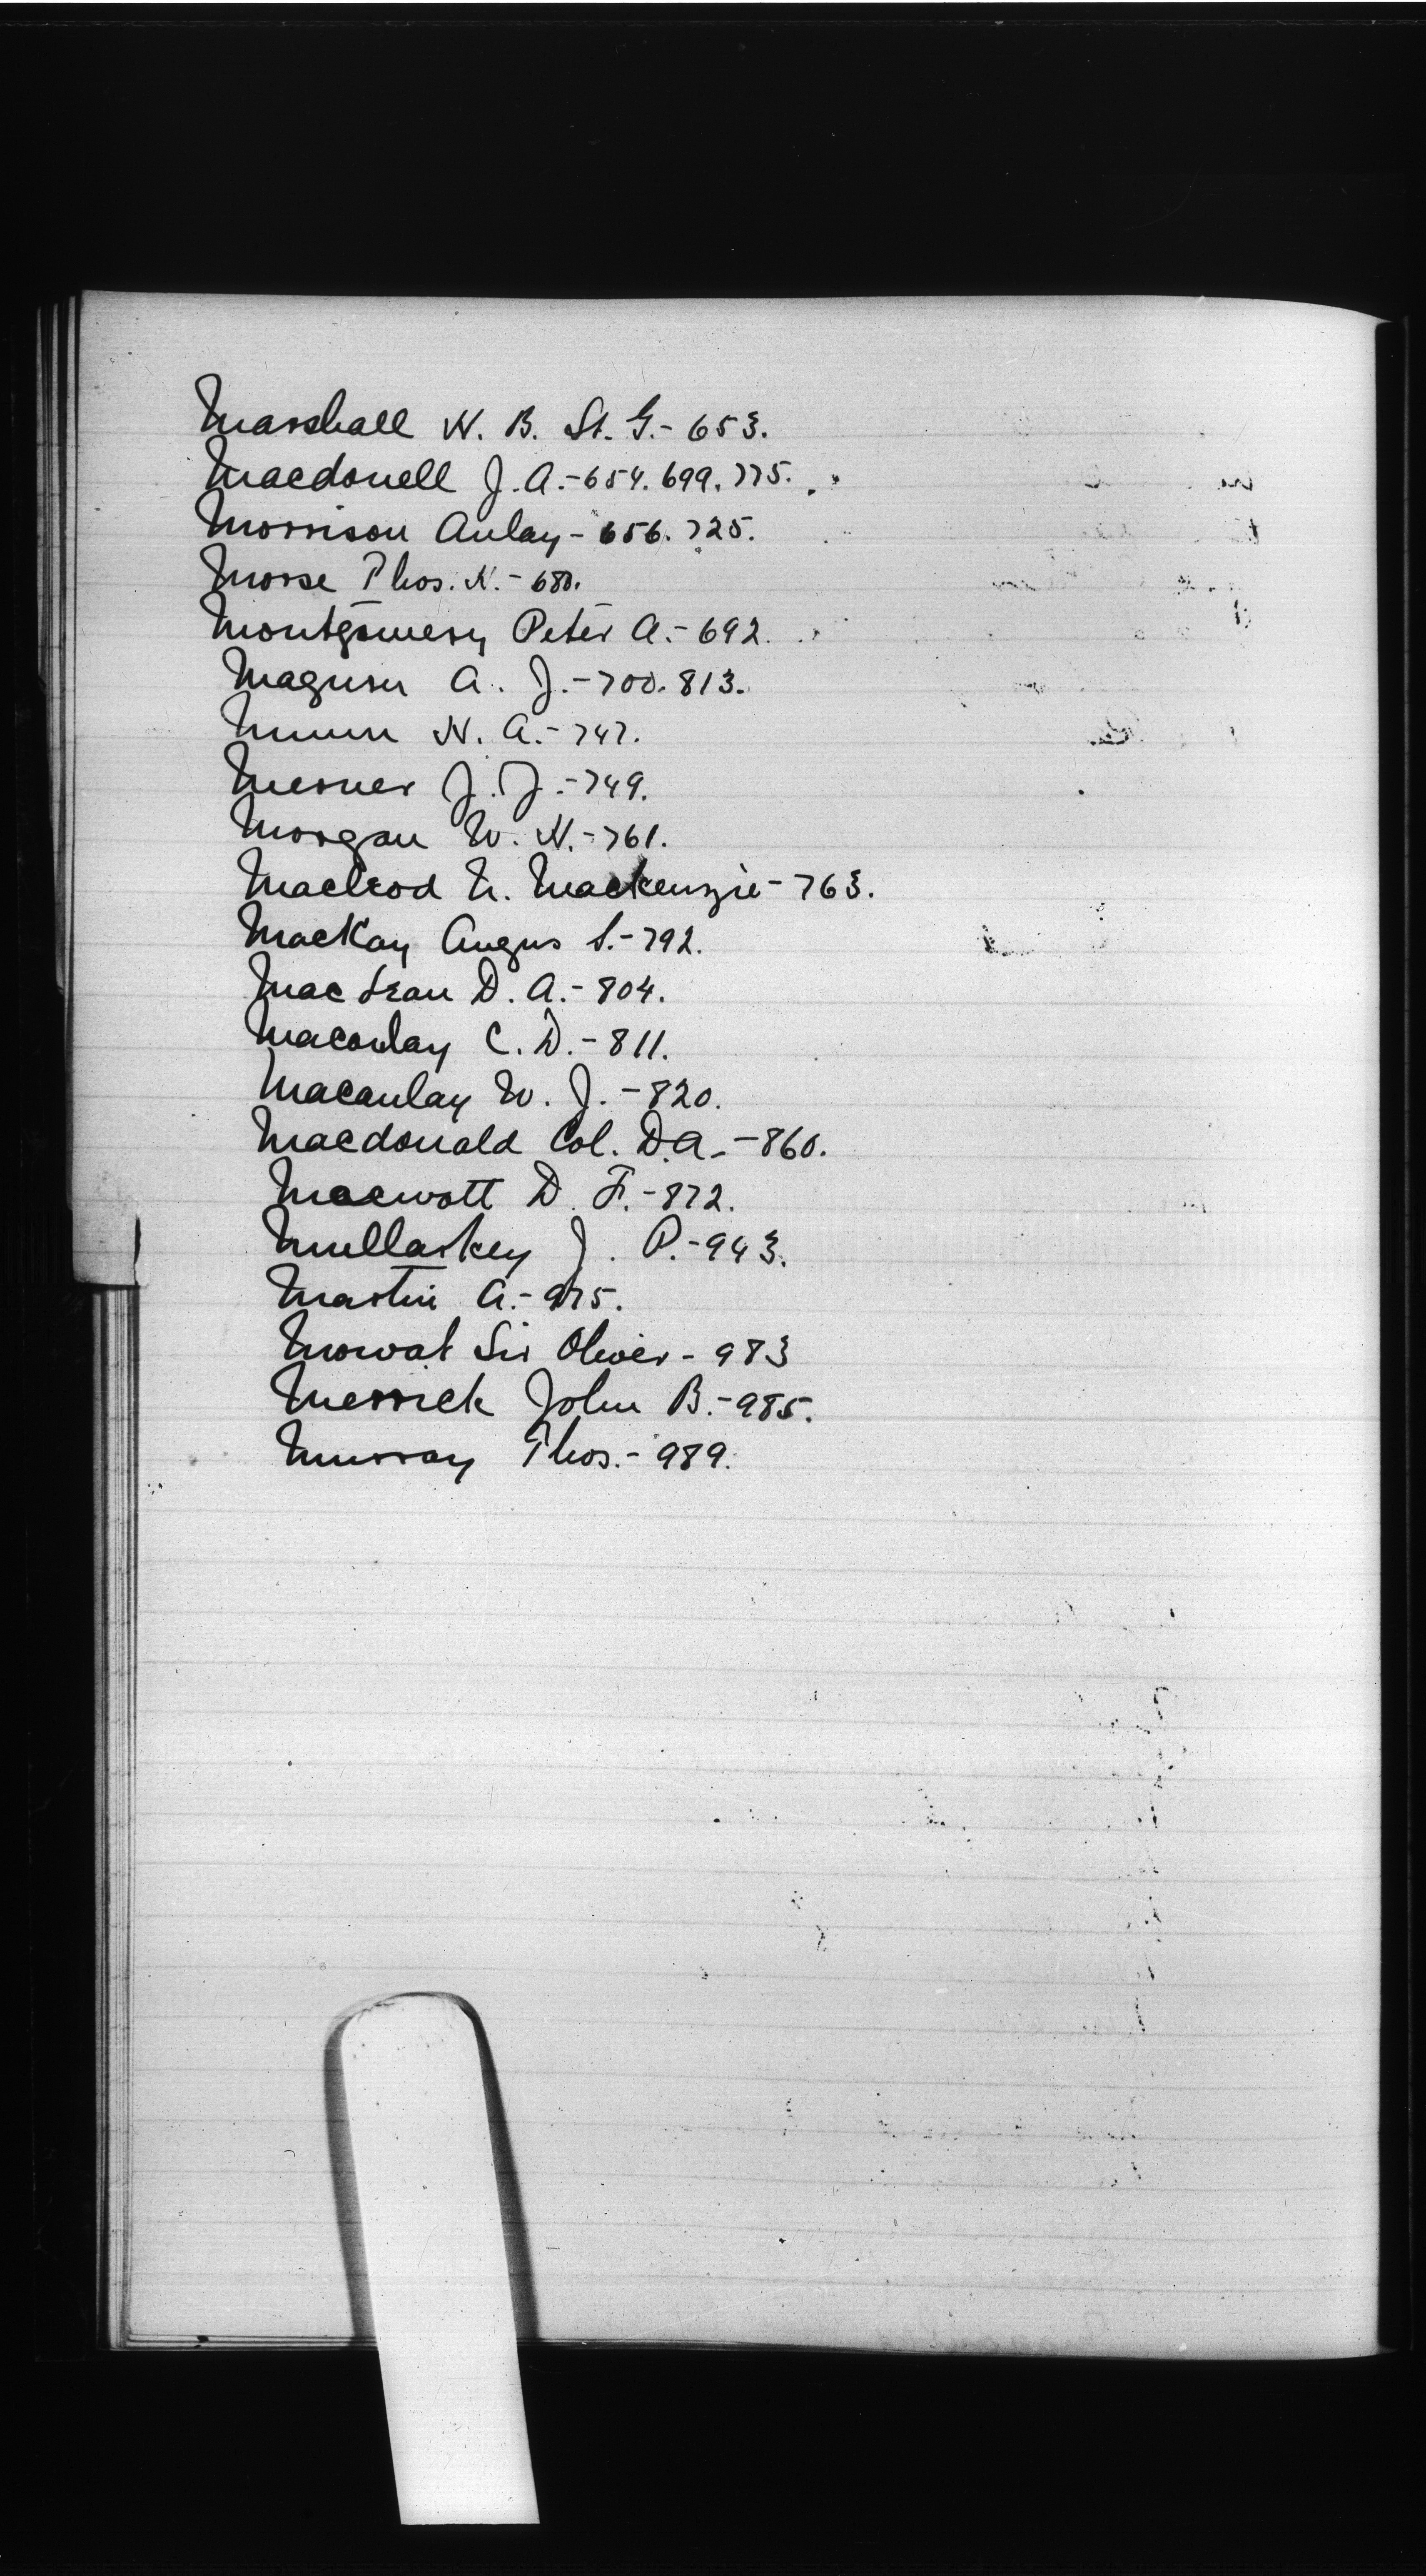 Marshall N. B. St. G.- 653.
Macdonell J. A.- 654. 699. 775.
Morrison Aulay - 656. 725.
Morse Thos. H.- 680.
Montgomery Peter A.- 692.
A. J.- 700. 813.
Munn H. A.- 747.
Mesner J. J.- 749.
Morgan W. H.- 761.
Macleod N. Mackenzie - 763.
MacKay Angus S.- 792.
MacLean D. A.- 804.
Macaulay C. D.- 811.
Macaulay W. J. - 820.
Macdonald Col. D.A. - 860.
Macwatt D. F.- 872.
Mullarkey J. P.- 943.
Martin A.- 975.
Mowat Sir Oliver - 983
Merrick John B.- 985.
Murray Thos.- 989.